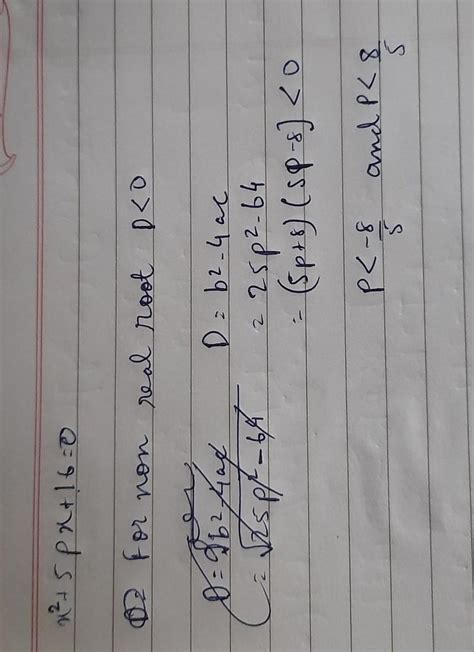 x²+5px+16=0
D= for non real root D<0
D=√b²-4ac
=√25p²-64
D=b²-4ac
=25p²-64
=(5p+8)(5p-8)<0
p<-8/5 and p<8/5